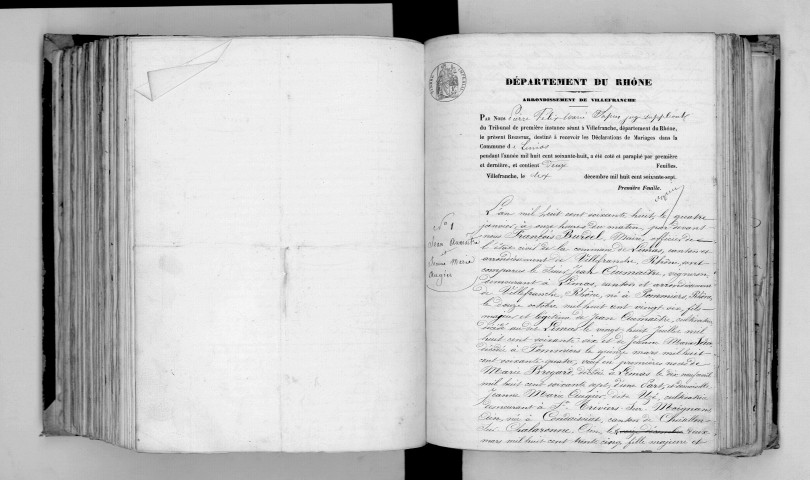 DÉPARTEMENT DU RHÔNE
ARRONDISSEMENT DE VILLEFRANCHE
PAR NOUS Pierre Félix Marie juge suppléant
du Tribunal de première instance séant à Villefranche, département du Rhône,
le présent REGISTRE, destiné à recevoir les Déclarations de Mariages dans la
Commune d e Limas
pendant l'année mil huit cent soixante-huit, a été coté et paraphé par première
et dernière, et contient Feuilles.
Villefranche, le dix décembre mil huit cent soixante-sept.
Première Feuille.
N° 1
Jean Aumaitre
et
Jeanne Marie
Augier
L'an mil huit cent soixante huit, le quatre
janvier, à onze heures du matin, par devant
nous François Burdel, Maire, officier de
l'état civil de la commune de Limas, canton et
arrondissement de Villefranche, Rhône, ont
comparu le sieur Jean Aumaitre, vigneron,
demeurant à Limas, canton et arrondissement
de Villefranche, Rhône, né à Pommiers, Rhône,
le douze octobre mil huit cent vingt six, fils
majeur et légitime de Jean Aumaitre, cultivateur
décédé au dit Limas le vingt huit juillet mil
huit cent soixante six et de Jeanne Marie
décédée à Pommiers le quinze mars mil huit
cent soixante quatre, veuf en premières noces de
Marie décédée à Limas le dix neuf
mil huit cent soixante sept, d'une part, et demoiselle
Jeanne Marie Augier, cultivatrice
demeurant à St Triviers sur Moignans
Ain, née à Condeissiat, canton de Chatillon
sur Chalaronne Ain, le onze
mars mil huit cent trente fille majeure et